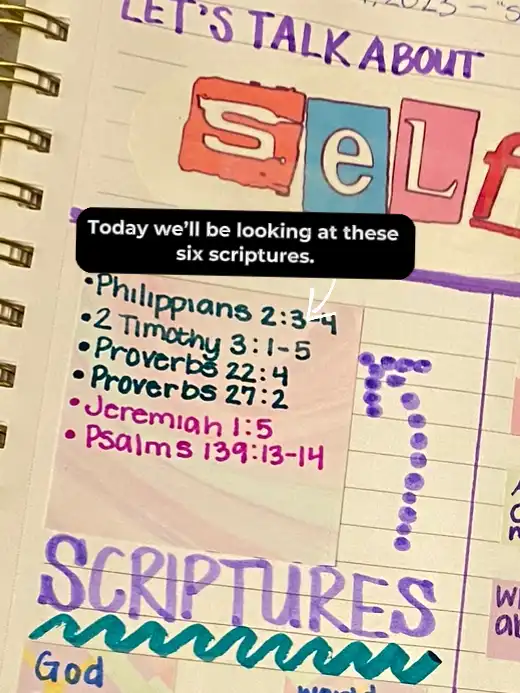 LET'S TALK ABOUT
SeLf
Today we'll be looking at these
six scriptures.
•Philippians 2:3-4
•2 Timothy 3:1-5
•Proverbs 22:4
•Proverbs 27:2
•Jeremiah 1:5
•Psalms 139:13-14
SCRIPTURES
God